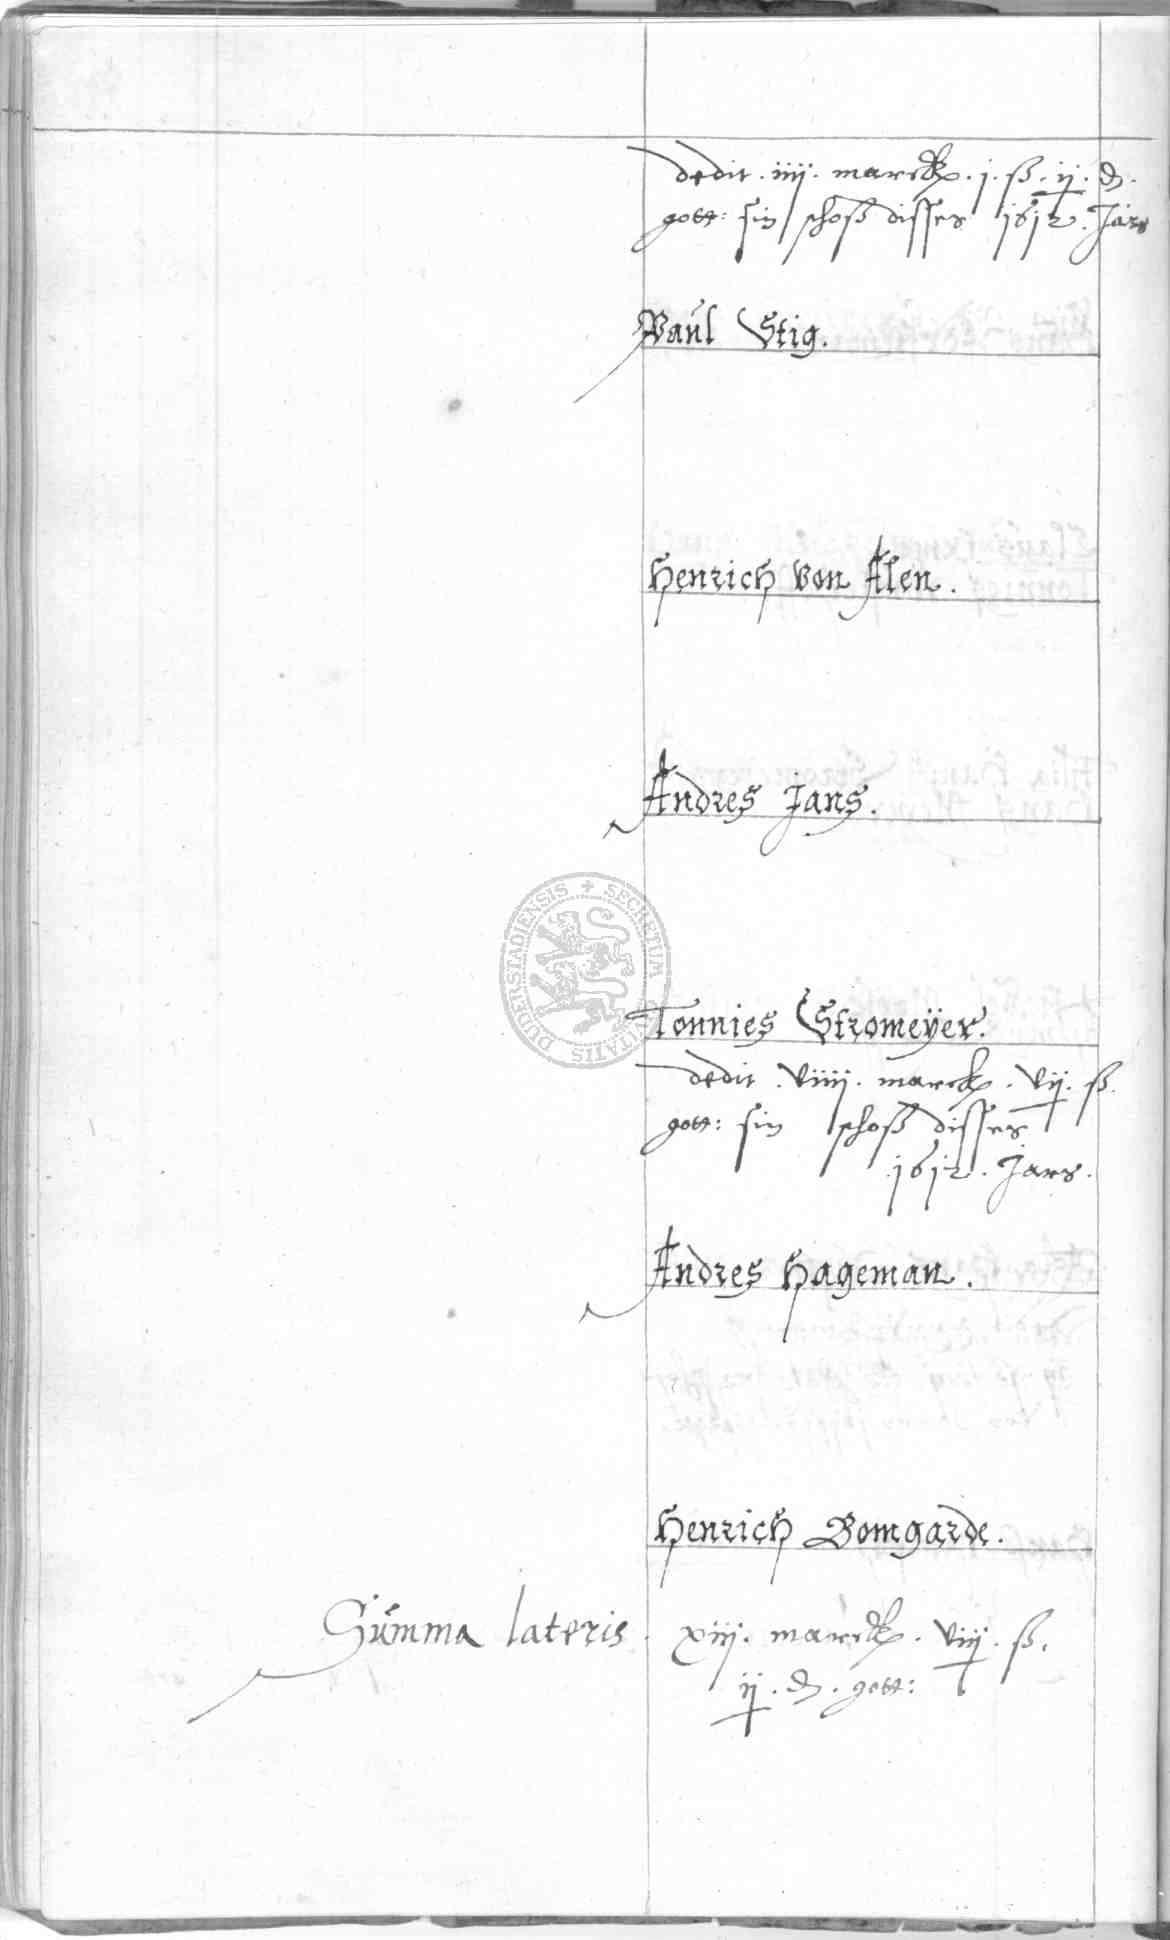 dedit . iiij . marck . j . ß . ij . d .
gott: sin schoß disses 1612 . Jars
Paul Stig.
Henrich von Alen.
Andres Jans.
SECRETUM CIVITATIS DUDERSTADIENSIS
Tonnies Stromeÿer.
dedit . viiij . marck . vij . ß .
gott: sin schoß disses
1612 . Jars .
Andres Hageman.
Henrich Bomgarde.
Summa lateris . xiij . marck . viij . ß .
ij . d . gott: